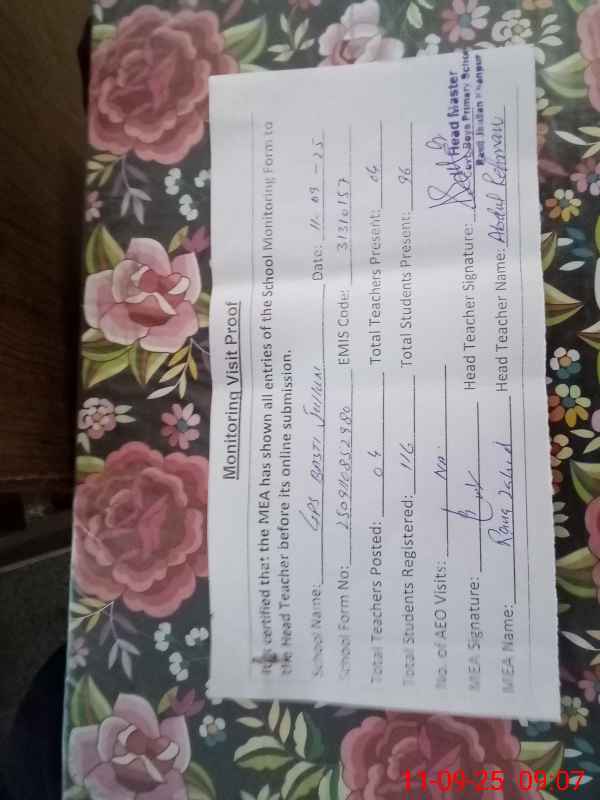 Monitoring Visit Proof
It is certified that the MEA has shown all entries of the School Monitoring Form to
the Head Teacher before its online submission.
School Name: GPS BASTI Date: 11-09-25
School Form No: 2509110852980 EMIS Code: 31310157
Total Teachers Posted: 04 Total Teachers Present: 04
Total Students Registered: 116 Total Students Present: 96
No. of AEO Visits: No.
MEA Signature: Head Teacher Signature:
MEA Name: Rana Head Teacher Name: Abdul Rehman
Head Master
Boys Primary School
11-09-25 09:07